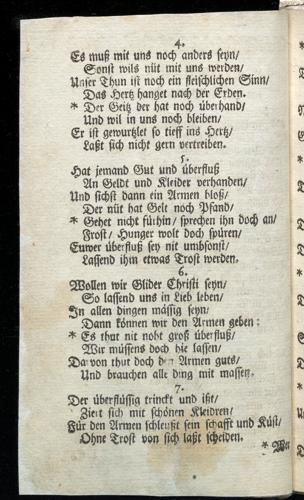 4.
Es muß mit uns noch anders seyn/
Sonst wils nüt mit uns werden/
Unser Thun ist noch ein fleischlichen Sinn/
Das Hertz hanget nach der Erden.
* Der Geitz der hat noch überhand/
Und wil in uns noch bleiben/
Er ist gewurtzlet so tieff ins Hertz/
Laßt sich nicht gern vertreiben.
5.
Hat jemand Gut und überfluß
An Geldt und Kleider verhanden/
Und sichst dann ein Armen bloß/
Der nüt hat Gelt noch Pfand/
* Gehet nicht fürhin/ sprechen ihn doch an/
Frost/ Hunger wolt doch spüren/
Euwer überfluß sey nit umbsonst/
Lassend ihm etwas Trost werden.
6.
Wollen wir Glider Christi seyn/
So lassend uns in Lieb leben/
In allen dingen mässig seyn/
Dann können wir den Armen geben:
* Es thut nit noht groß überfluß/
Wir müssens doch hie lassen/
Davon thut doch den Armen guts/
Und brauchen alle ding mit massen.
7.
Der überflüssig trinckt und ißt/
Ziert sich mit schönen Kleidren/
Für den Armen schleußt sein schafft und Küst/
Ohne Trost von sich laßt scheiden.
* Wer